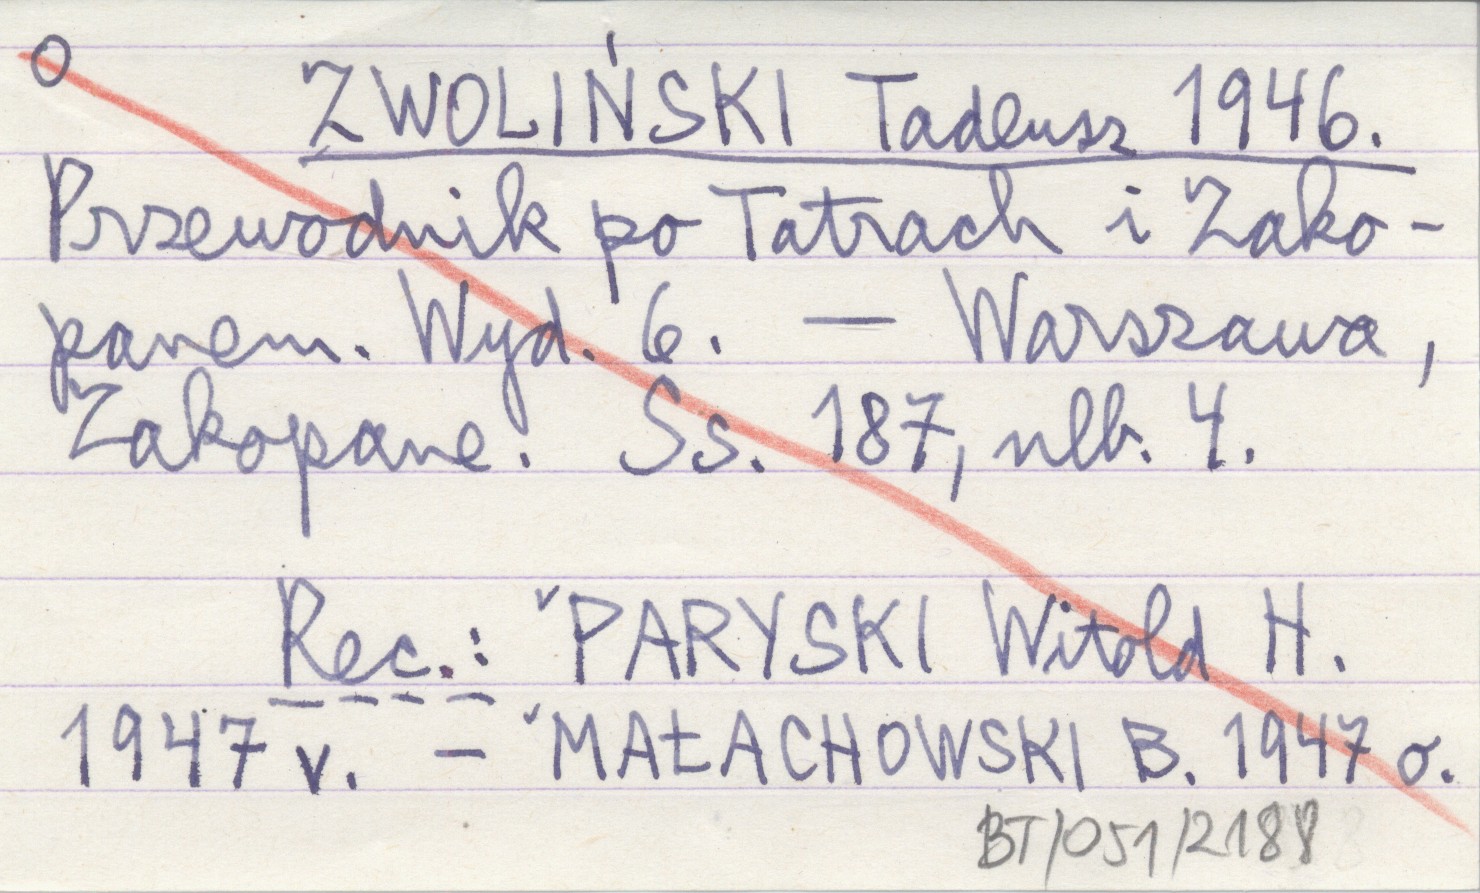 O ZWOLIŃSKI Tadeusz 1946.
Przewodnik po Tatrach i Zako-
panem. Wyd. 6. — Warszawa,
Zakopane. Ss. 187, nlb. 4.
Rec.: ˇPARYSKI Witold H.
1947 v. – ˇMAŁACHOWSKI B. 1947 o.
BT/051/2188